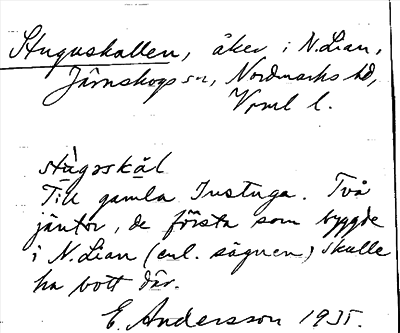 Stuguskallen, åker i N. Lian,
Järnskogs sn, Nordmarks hd,
Vrml l.
stùgɔskàl
Till gamla Instuga. Två
jäntor, de första som byggde
i N. Lian (enl. sägnen) skulle
ha bott där.
E. Andersson 1935.